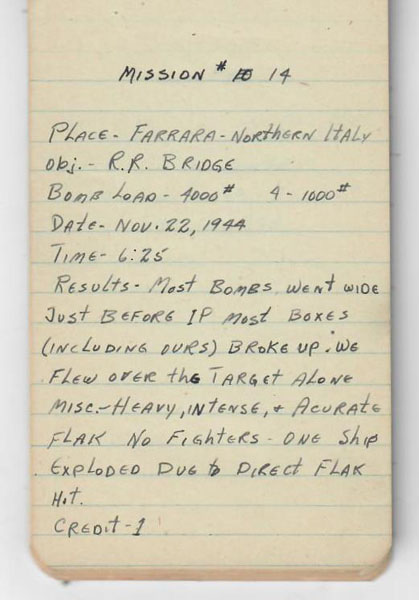 Mission # 14
Place- Farrara- Northern Italy
Obj.- R.R. Bridge
Bomb Load- 4000# 4-1000#
Date- Nov. 22, 1944
Time- 6:25
Results- Most Bombs went wide
Just Before IP most Boxes
(including ours) Broke up. We
flew over the Target Alone
Misc.- Heavy, intense, & Acurate
flak No Fighters- One Ship
Exploded Due to Direct Flak
Hit.
Credit-1